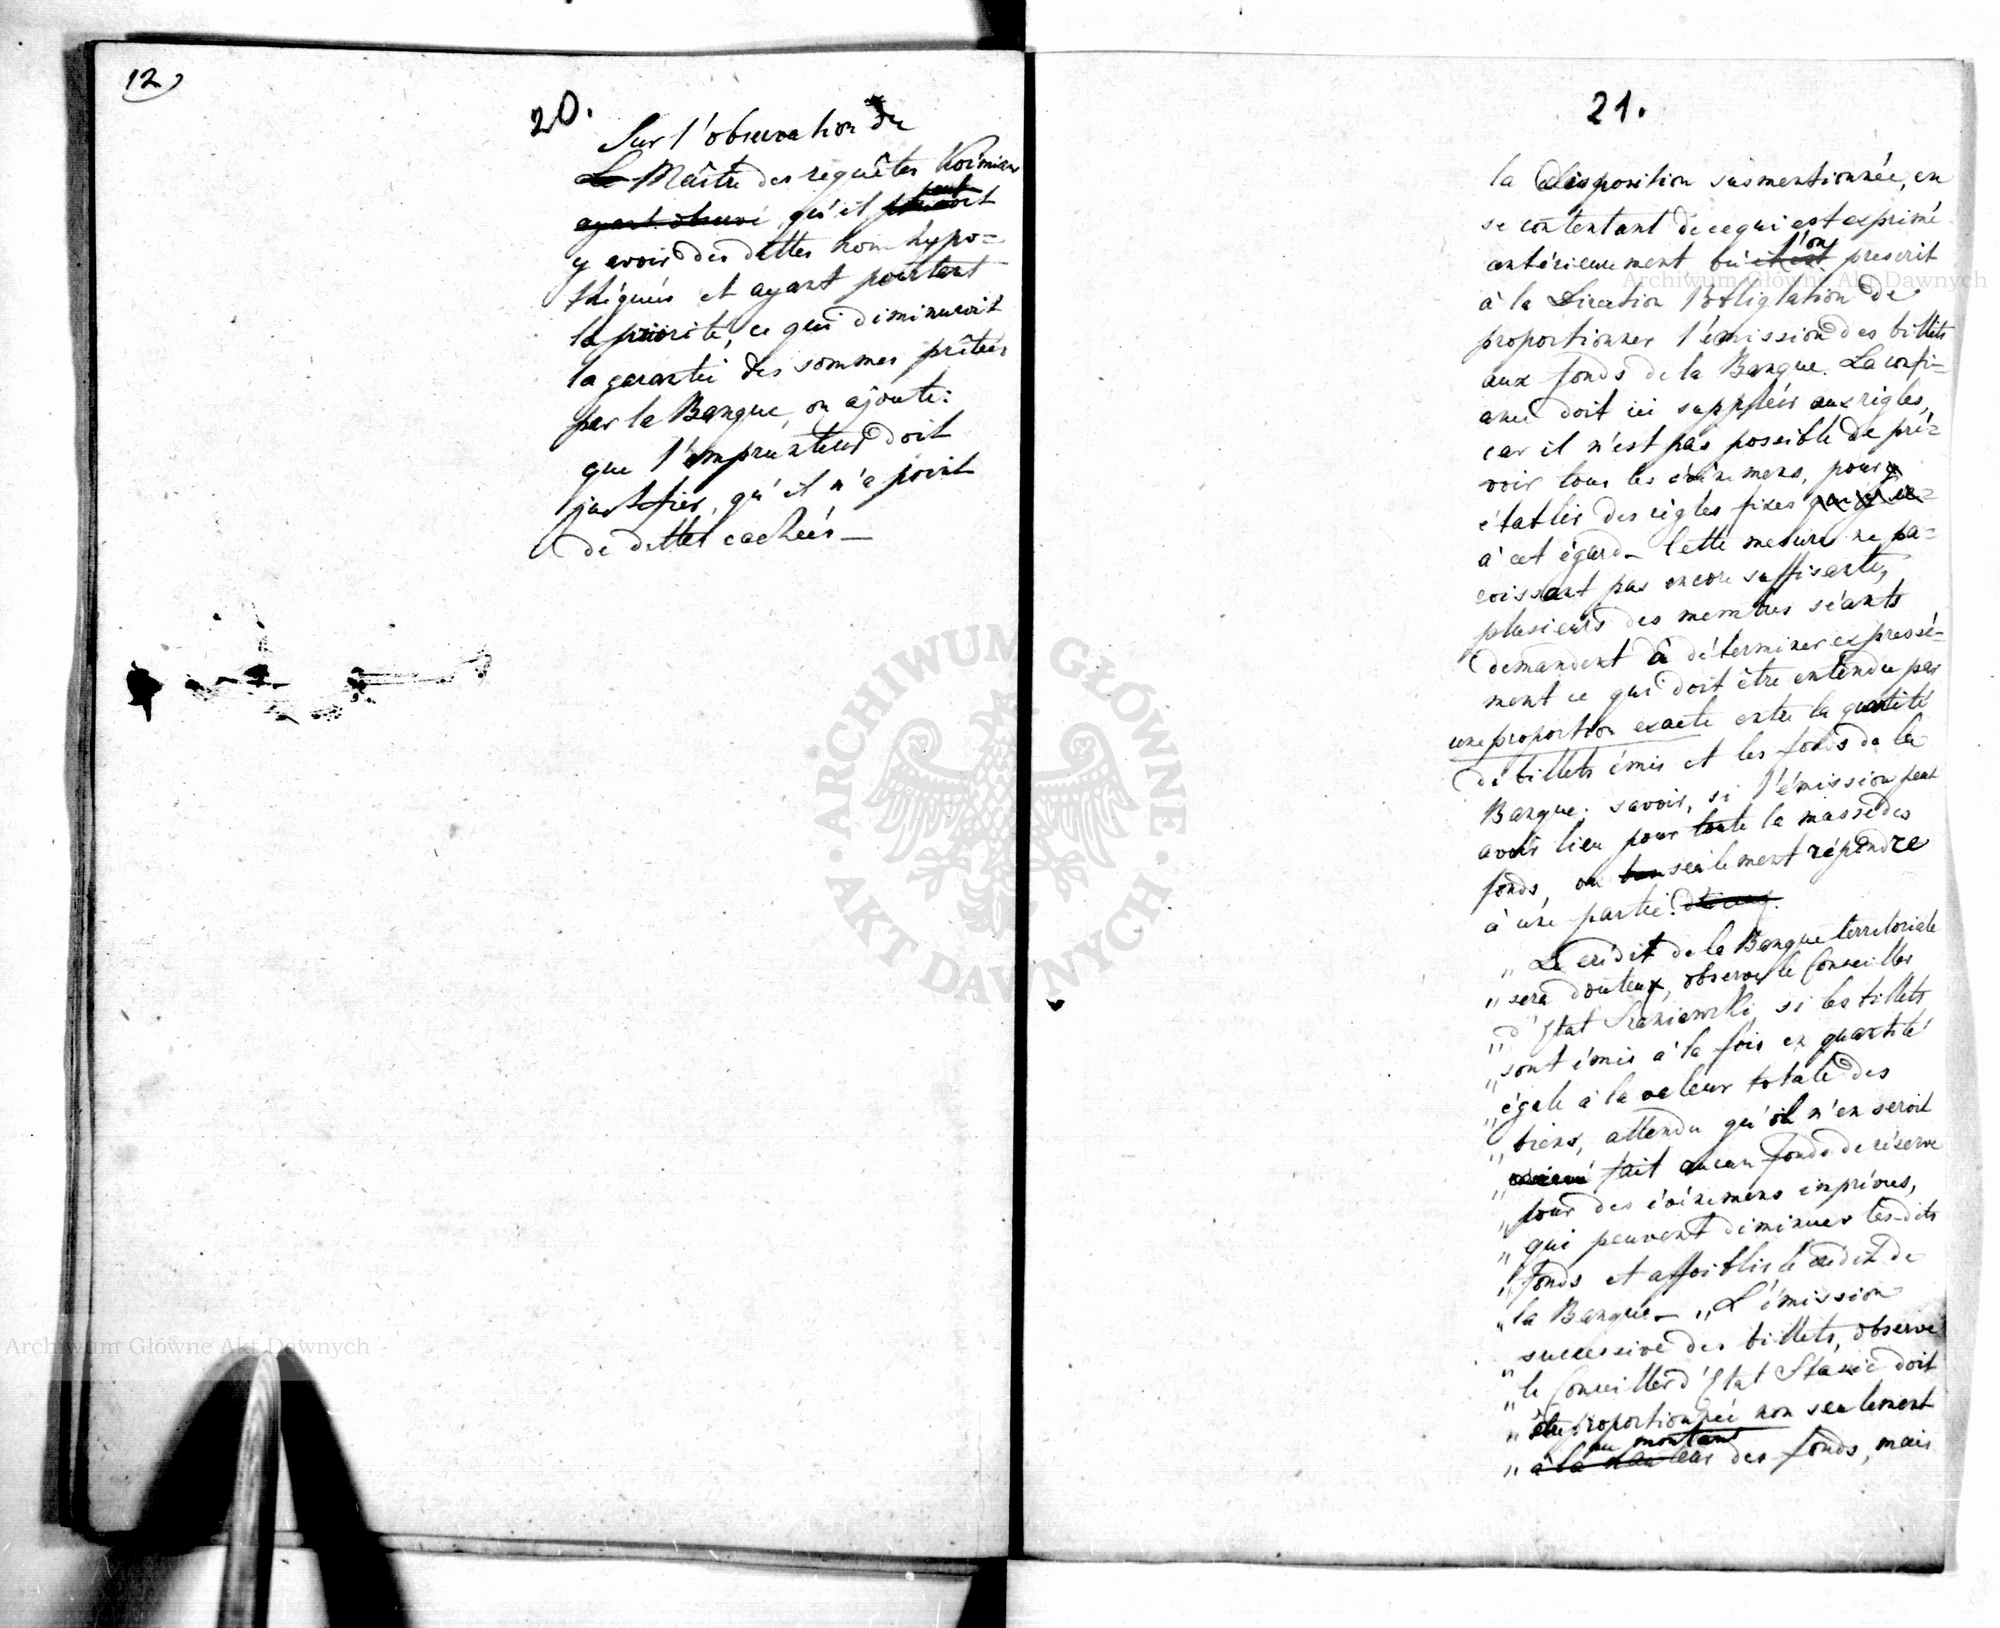 12)
20.
Sur l'observation du
Le Maître des requêtes Koźmian
ayant observé, qu'il peut
y avoir des dettes non hypo=
théquées et ayant pourtant
la priorité, ce qui diminueroit
la garantie des sommes prêtées
par la Banque, on ajoute:
que l'emprunteur doit
justifier, qu'il n'a point
de dettes cachées —
21.
la disposition susmentionnée, en
se contentant de ce qui est exprimé
antérieurement où l'on prescrit
à la Direction l'obligation de
proportionner l'émission des billets
aux fonds de la Banque. La confi=
ance doit ici suppléer aux règles,
car il n'est pas possible de pré=
voir tous les évènemens, pour y
établir des règles fixes
à cet égard — Cette mesure ne pa=
roissant pas encore suffisante,
plusieurs des membres séants
demandent à déterminer expressé=
ment ce qui doit être entendu par
une proportion exacte entre la quantité
de billets émis et les fonds de la
Banque; savoir, si l'émission peut
avoir lieu pour toute la masse des
fonds, ou seulement répondre
à une partie.
„ Le crédit de la Banque territoriale
„ sera douteux, observe le Conseiller
„ d'Etat Szaniawski, si les billets
„ sont émis à la fois en quantité
„ égale à la valeur totale des
„ biens, attendu qu'il n'en seroit
„ fait aucun fonds de réserve
„ pour des évènemens imprévus,
„ qui peuvent diminuer les dits
„ fonds et affoiblir le crédit de
„ la Banque — „ L'émission
„ successive des billets, observe
„ le Conseiller d'Etat Staszic doit
„ être proportionnée non seulement
au montant
„ à la valeur des fonds, mais
ARCHIWUM GŁÓWNE AKT DAWNYCH
Archiwum Główne Akt Dawnych
Archiwum Główne Akt Dawnych